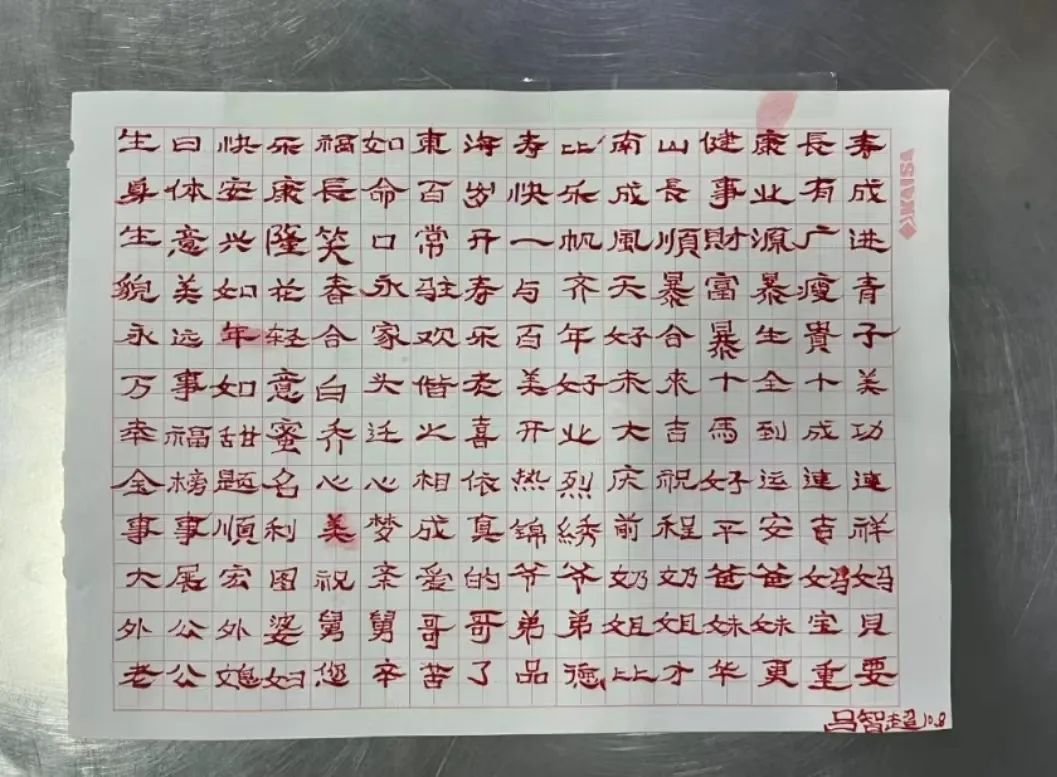 生日快乐福如東海寿比南山健康長寿
身体安康長命百岁快乐成長事业有成
生意兴隆笑口常开一帆風順財源广进
貌美如花春永驻寿与齐天暴富暴瘦青
永远年轻合家欢乐百年好合暴生貴子
万事如意白头偕老美好未來十全十美
幸福甜蜜乔迁之喜开业大吉馬到成功
金榜题名心心相依热烈庆祝好运連連
事事順利美梦成真锦绣前程平安吉祥
大展宏图祝亲爱的爷爷奶奶爸爸妈妈
外公外婆舅舅哥哥弟弟姐姐妹妹宝貝
老公媳妇您辛苦了品德比才华更重要
吕智超10.8
KAISA